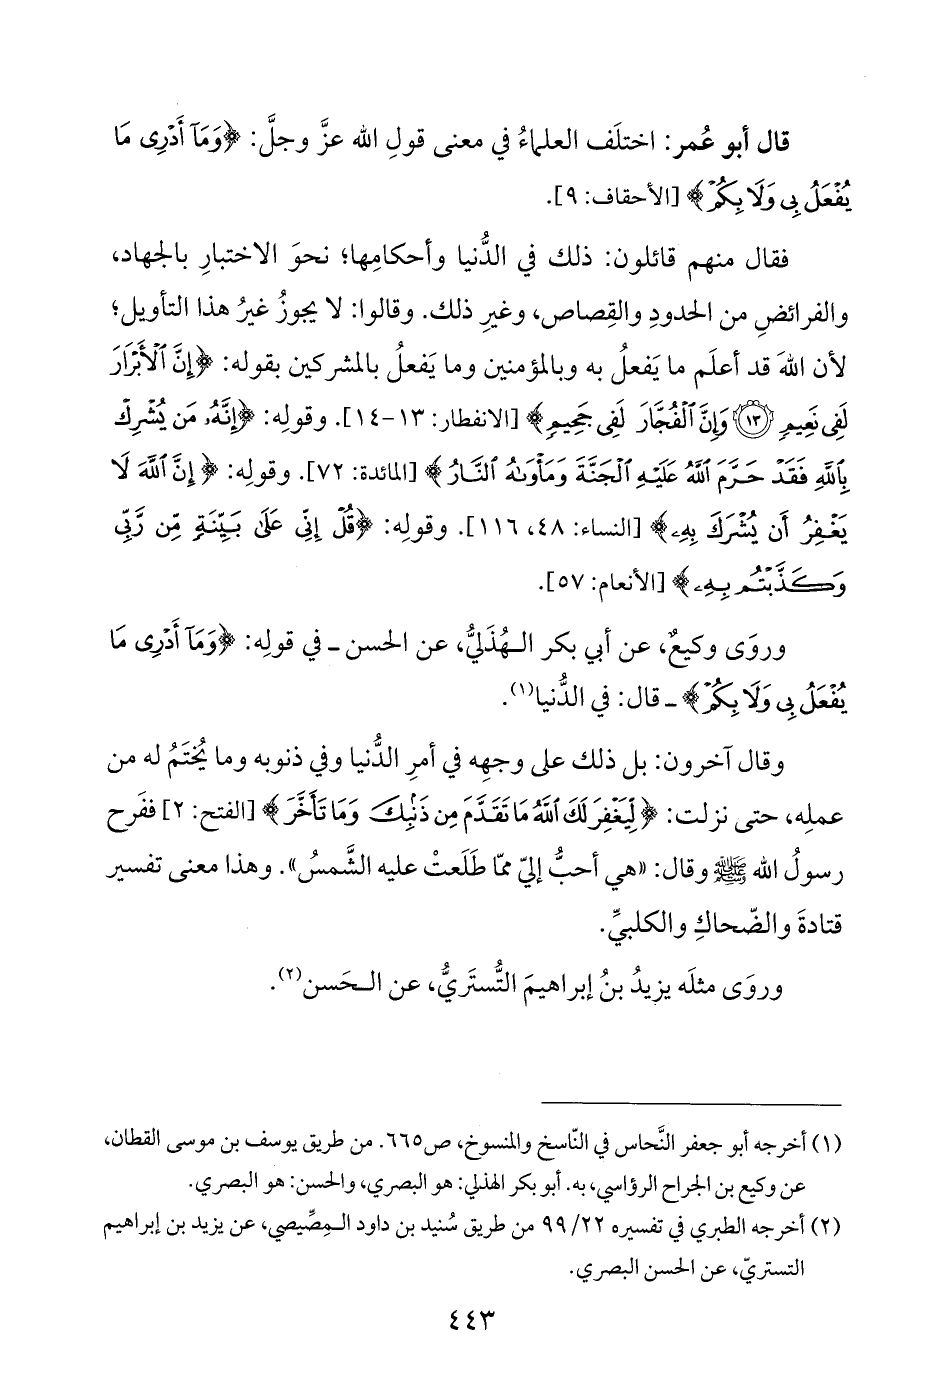 قال أبو عُمر: اختلَف العلماءُ في معنى قولِ الله عزَّ وجلَّ: ﴿وَمَآ أَدۡرِى مَا
يُفۡعَلُ بِى وَلَا بِكُمۡ﴾ [الأحقاف: ٩].
فقال منهم قائلون: ذلك في الدُّنيا وأحكامِها؛ نحوَ الاختبارِ بالجهاد،
والفرائضِ من الحدودِ والقِصاص، وغيرِ ذلك. وقالوا: لا يجوزُ غيرُ هذا التأويل؛
لأن اللهَ قد أعلَم ما يَفعلُ به وبالمؤمنين وما يَفعلُ بالمشركين بقوله: ﴿إِنَّ ٱلۡأَبۡرَارَ
لَفِى نَعِيمٍ ۝١٣ وَإِنَّ ٱلۡفُجَّارَ لَفِى جَحِيمٍ﴾ [الانفطار: ١٣-١٤]. وقولِه: ﴿إِنَّهُۥ مَن يُشۡرِكۡ
بِٱللَّهِ فَقَدۡ حَرَّمَ ٱللَّهُ عَلَيۡهِ ٱلۡجَنَّةَ وَمَأۡوَىٰهُ ٱلنَّارُ﴾ [المائدة: ٧٢]. وقولِه: ﴿إِنَّ ٱللَّهَ لَا
يَغۡفِرُ أَن يُشۡرَكَ بِهِۦ﴾ [النساء: ٤٨، ١١٦]. وقولِه: ﴿قُلۡ إِنِّى عَلَىٰ بَيِّنَةٍ مِّن رَّبِّى
وَكَذَّبۡتُم بِهِۦ﴾ [الأنعام: ٥٧].
وروَى وكيعٌ، عن أبي بكر الهُذَليُّ، عن الحسن - في قولِه: ﴿وَمَآ أَدۡرِى مَا
يُفۡعَلُ بِى وَلَا بِكُمۡ﴾ - قال: في الدُّنيا(١).
وقال آخرون: بل ذلك على وجهِه في أمرِ الدُّنيا وفي ذنوبه وما يُختَمُ له من
عملِه، حتى نزلت: ﴿لِّيَغۡفِرَ لَكَ ٱللَّهُ مَا تَقَدَّمَ مِن ذَنۢبِكَ وَمَا تَأَخَّرَ﴾ [الفتح: ٢] ففَرح
رسولُ الله ﷺ وقال: «هي أحبُّ إليّ ممّا طَلَعتْ عليه الشَّمسُ». وهذا معنى تفسير
قتادةَ والضّحاكِ والكلبيِّ.
وروَى مثلَه يزيدُ بنُ إبراهيمَ التُّستَريُّ، عن الحَسن(٢).
(١) أخرجه أبو جعفر النَّحاس في النّاسخ والمنسوخ، ص٦٦٥. من طريق يوسف بن موسى القطان،
عن وكيع بن الجراح الرؤاسي، به. أبو بكر الهذلي: هو البصري، والحسن: هو البصري.
(٢) أخرجه الطبري في تفسيره ٢٢/ ٩٩ من طريق سُنيد بن داود المِصِّيصي، عن يزيد بن إبراهيم
التستريّ، عن الحسن البصري.
٤٤٣